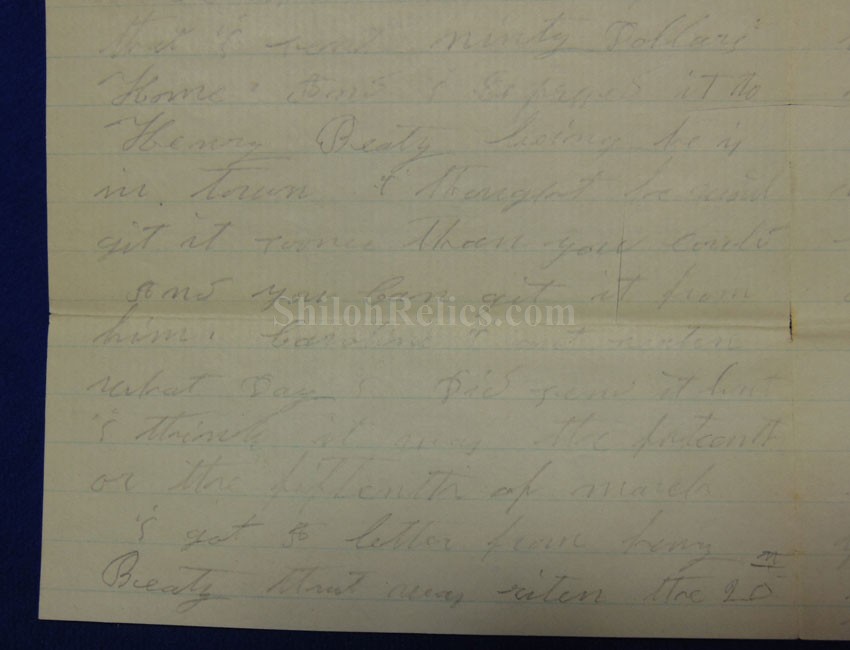 that i sent ninty Dollars
Home and i expresed it to
Henry Beaty being he is
in town i thought he wold
git it sooner then you could
and you can git it from
him
what day i did send it but
i think it was the
or the fifteenth of march
i got a letter from
Beaty that was riten the 20
ShilohRelics.com